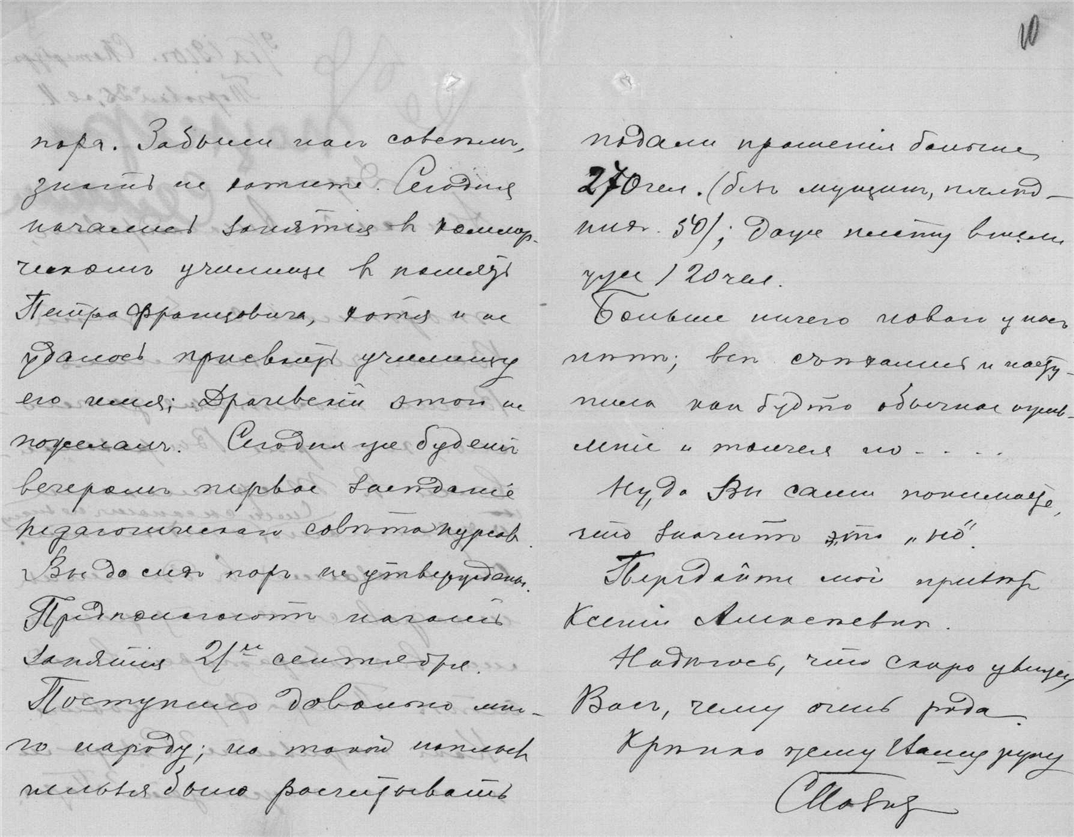 пора. Забыли нас совсем,
знать не хотите. Сегодня
начались занятія в коммер-
ческомъ училище в память
Петра Францовича, хотя и не
удалось присвоить училищу
его имя; Драчевскій этого не
пожелалъ. Сегодня же будетъ
вечеромъ первое заседаніе
педагогическаго совѣта курсов.
Вы до сих пор не утверждены.
Предполагаютъ начать
занятія 21го сентября.
Поступило довольно мно-
го народу; на такой наплыв
нельзя было расчитывать
10
подали прошенія больше
270 чел. (без мущин,
50); Даже плату внесли
уже 120 чел.
Больше ничего новаго у насъ
нѣтъ; все съѣхались и насту-
пило как будто обычное ожив-
леніе и толчея но . . . .
Ну, да Вы сами понимаете,
что значитъ это „но“.
Передайте мой привѣт
Ксеніи Алексѣевнѣ.
Надѣюсь, что скоро увижу
Вас, чему очень рада.
Крѣпко жму Вашу руку